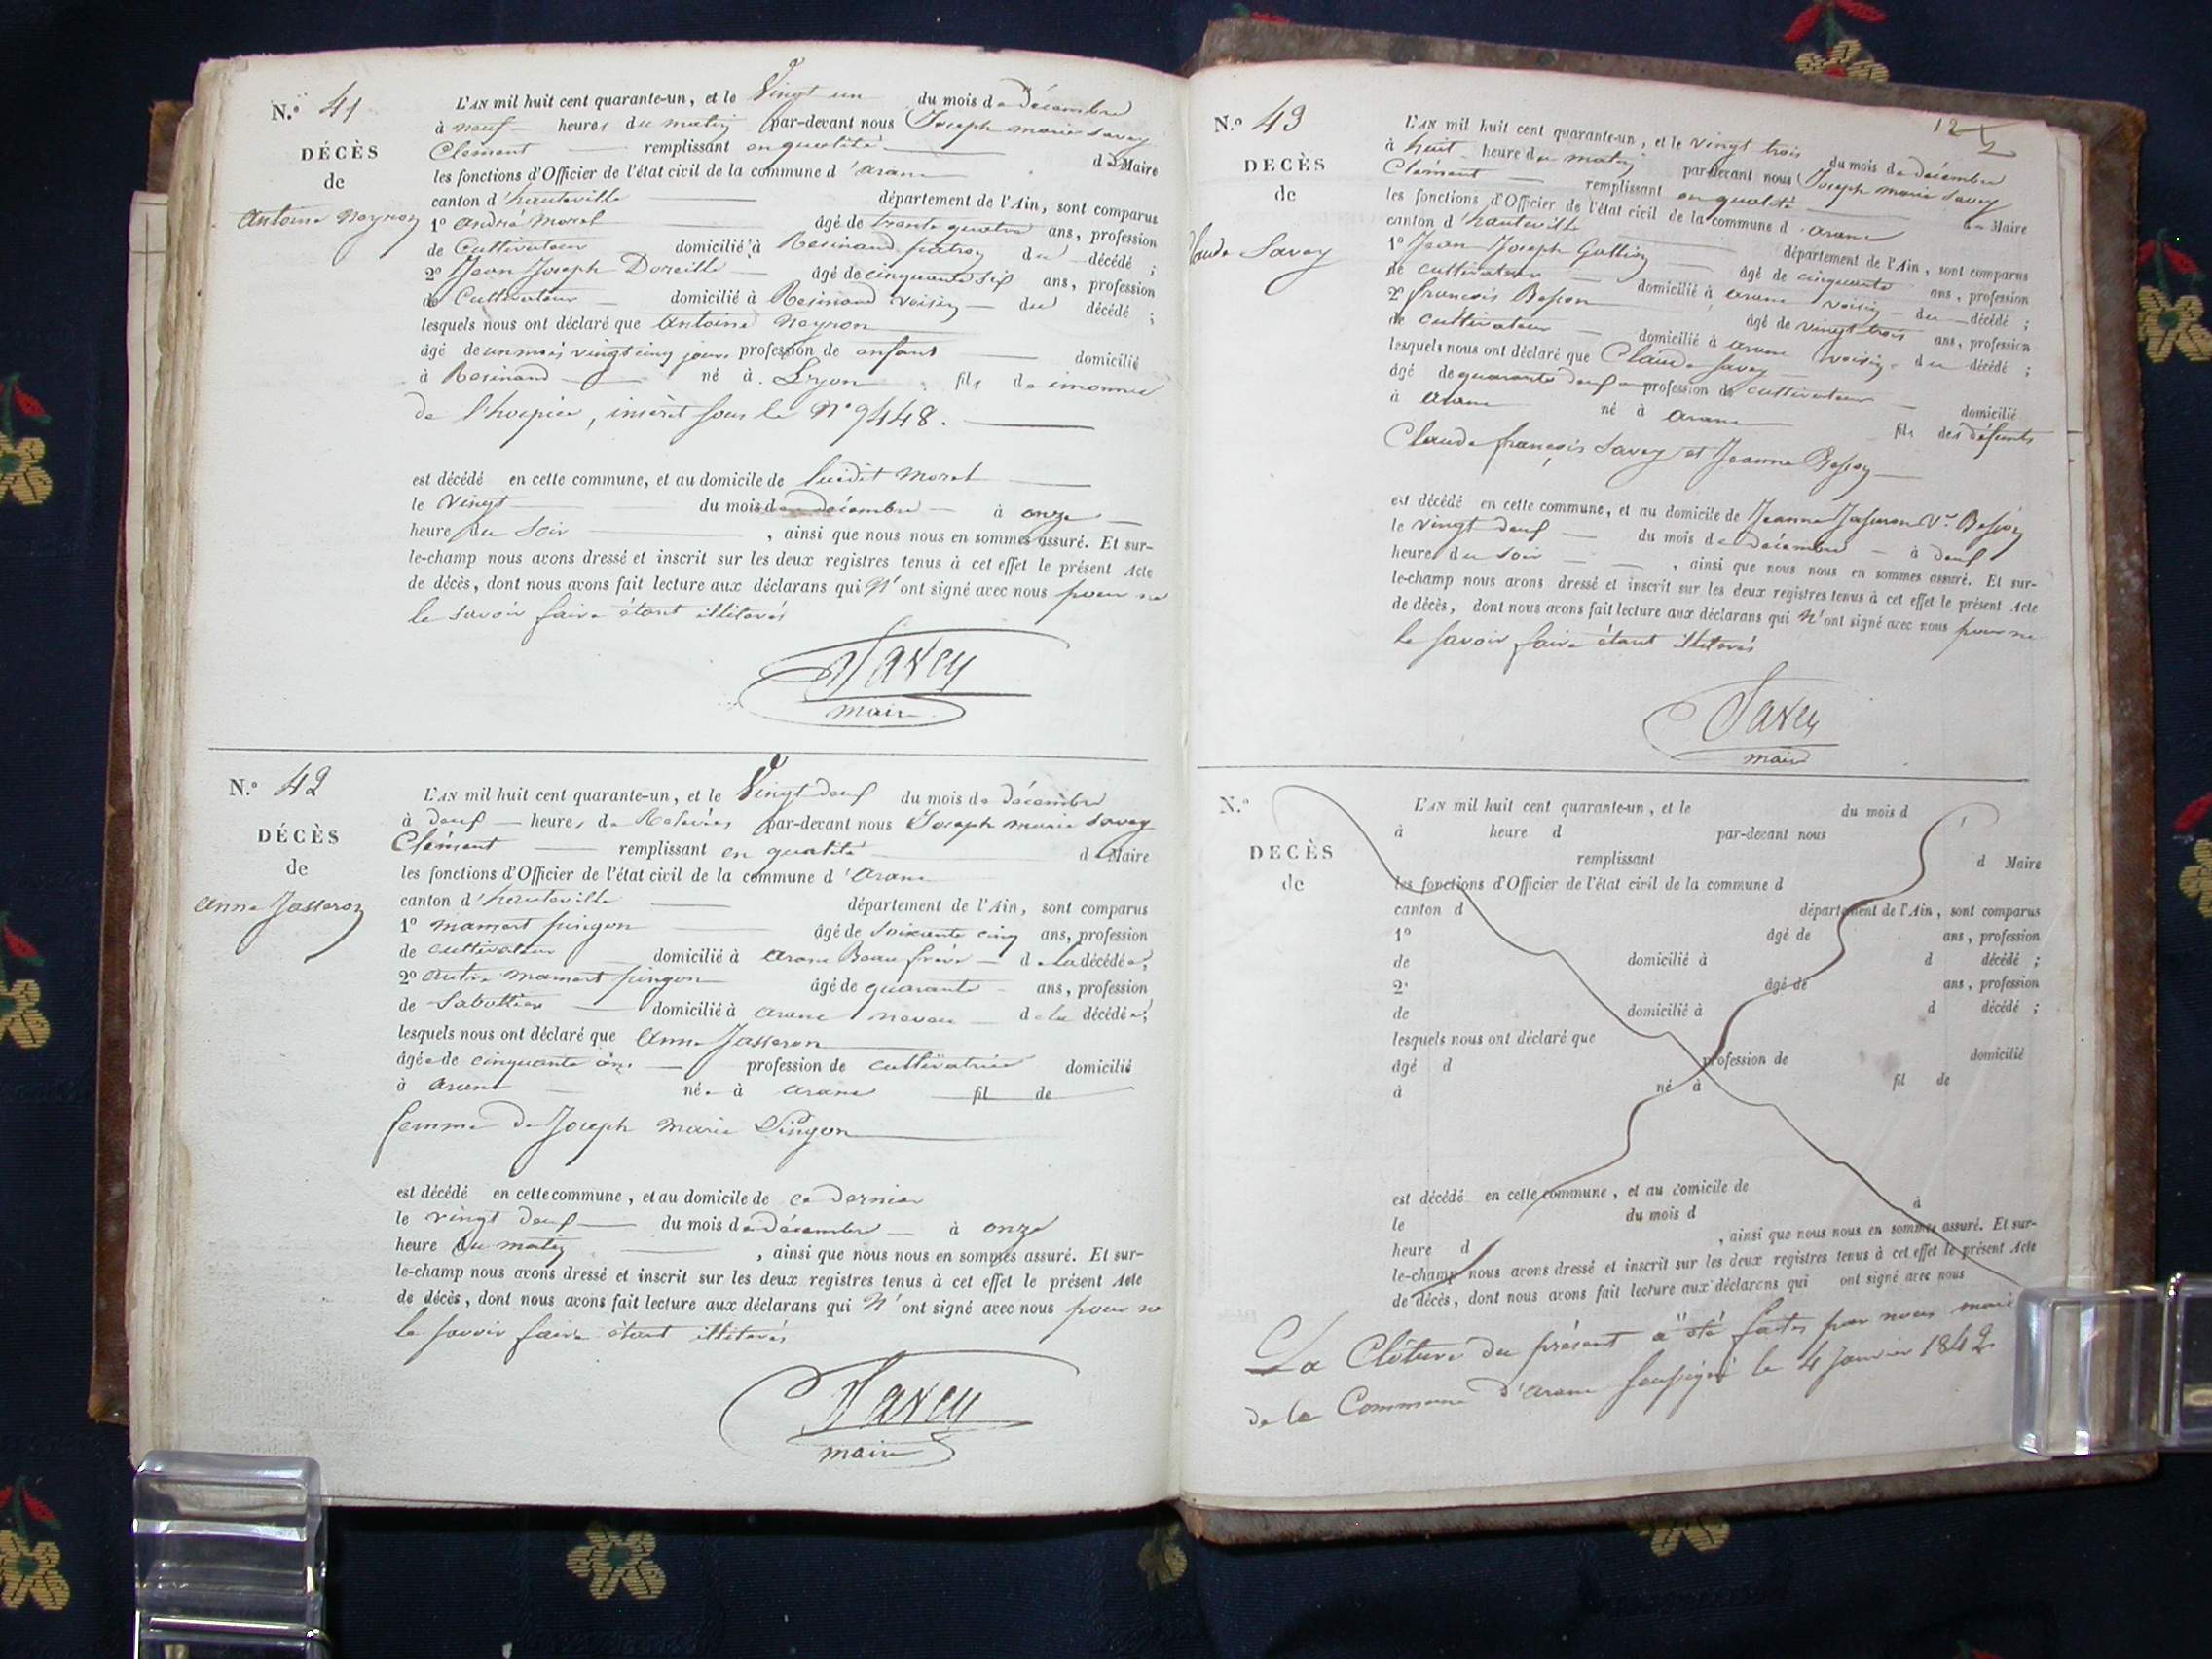 N.° 41
DÉCÈS
de
Antoine Neyron
L'AN mil huit cent quarante-un, et le Vingt un du mois de décembre
à neuf heures du matin par-devant nous Joseph marie Savey
Clément remplissant en qualité de Maire
les fonctions d'Officier de l'état civil de la commune d'aranc
canton d'hauteville département de l'Ain, sont comparus
1° andré Morel âgé de trente quatre ans, profession
de Cultivateur domicilié à Resinand patron du décédé ;
2° Jean Joseph Doreille âgé de cinquante six ans, profession
de Cultivateur domicilié à Resinand voisin du décédé ;
lesquels nous ont déclaré que Antoine Neyron
âgé de un mois vingt cinq jours profession de enfant domicilié
à Resinand né à Lyon fils de inconnu
de l'hospice, inscrit sous le N° 9448.
est décédé en cette commune, et au domicile de ludit Morel
le Vingt du mois de décembre à onze
heure du Soir , ainsi que nous nous en sommes assuré. Et sur-
le-champ nous avons dressé et inscrit sur les deux registres tenus à cet effet le présent Acte
de décès, dont nous avons fait lecture aux déclarans qui N'ont signé avec nous pour ne
le savoir faire étant illiterés
Savey
maire
N.° 42
DÉCÈS
de
anne Jasseron
L'AN mil huit cent quarante-un, et le Vingt deux du mois de décembre
à deux heures de Relevées par-devant nous Joseph marie Savey
Clément remplissant en qualité de Maire
les fonctions d'Officier de l'état civil de la commune d'aranc
canton d'hauteville département de l'Ain, sont comparus
1° mamert pingon âgé de Soixante cinq ans, profession
de cultivateur domicilié à aranc Beau frère de la décédée ;
2° autre mamert pingon âgé de quarante ans, profession
de Sabottier domicilié à aranc neveu de la décédée ;
lesquels nous ont déclaré que Anne Jasseron
âgée de cinquante ans profession de cultivatrice domicilié
à aranc née à aranc fil de
femme de Joseph Marie Pingon
est décédé en cette commune, et au domicile de ce dernier
le vingt deux du mois de décembre à onze
heure du matin , ainsi que nous nous en sommes assuré. Et sur-
le-champ nous avons dressé et inscrit sur les deux registres tenus à cet effet le présent Acte
de décès, dont nous avons fait lecture aux déclarans qui N'ont signé avec nous pour ne
le savoir faire étant illiterés
Savey
maire
12
N.° 43
DECÈS
de
Claude Savey
L'AN mil huit cent quarante-un, et le vingt trois du mois de décembre
à huit heure du matin par-devant nous Joseph marie Savey
Clément remplissant en qualité de Maire
les fonctions d'Officier de l'état civil de la commune d'aranc
canton d'hauteville département de l'Ain, sont comparus
1° Jean Joseph Gallion âgé de cinquante ans, profession
de cultivateur domicilié à aranc voisin du décédé ;
2° françois Besson âgé de vingt trois ans, profession
de cultivateur domicilié à aranc voisin du décédé ;
lesquels nous ont déclaré que Claude Savey
âgé de quarante deux profession de cultivateur domicilié
à aranc né à aranc fils des défunts
Claude françois Savey et Jeanne Besson
est décédé en cette commune, et au domicile de Jeanne Jasseron Ve Besson
le vingt deux du mois de décembre à deux
heures du soir , ainsi que nous nous en sommes assuré. Et sur-
le-champ nous avons dressé et inscrit sur les deux registres tenus à cet effet le présent Acte
de décès, dont nous avons fait lecture aux déclarans qui N'ont signé avec nous pour ne
le savoir faire étant illiterés
Savey
maire
N.°
DECÈS
de
L'AN mil huit cent quarante-un, et le du mois d
à heure d par-devant nous
remplissant d Maire
les fonctions d'Officier de l'état civil de la commune d
canton d département de l'Ain, sont comparus
1° âgé de ans, profession
de domicilié à d décédé ;
2° âgé de ans, profession
de domicilié à d décédé ;
lesquels nous ont déclaré que
âgé d profession de domicilié
à né à fil de
est décédé en cette commune, et au domicile de
le du mois d à
heure d , ainsi que nous nous en sommes assuré. Et sur-
le-champ nous avons dressé et inscrit sur les deux registres tenus à cet effet le présent Acte
de décès, dont nous avons fait lecture aux déclarans qui ont signé avec nous
La Clôture du présent à été faites par nous maire
de la Commune d'aranc soussigné le 4 Janvier 1842